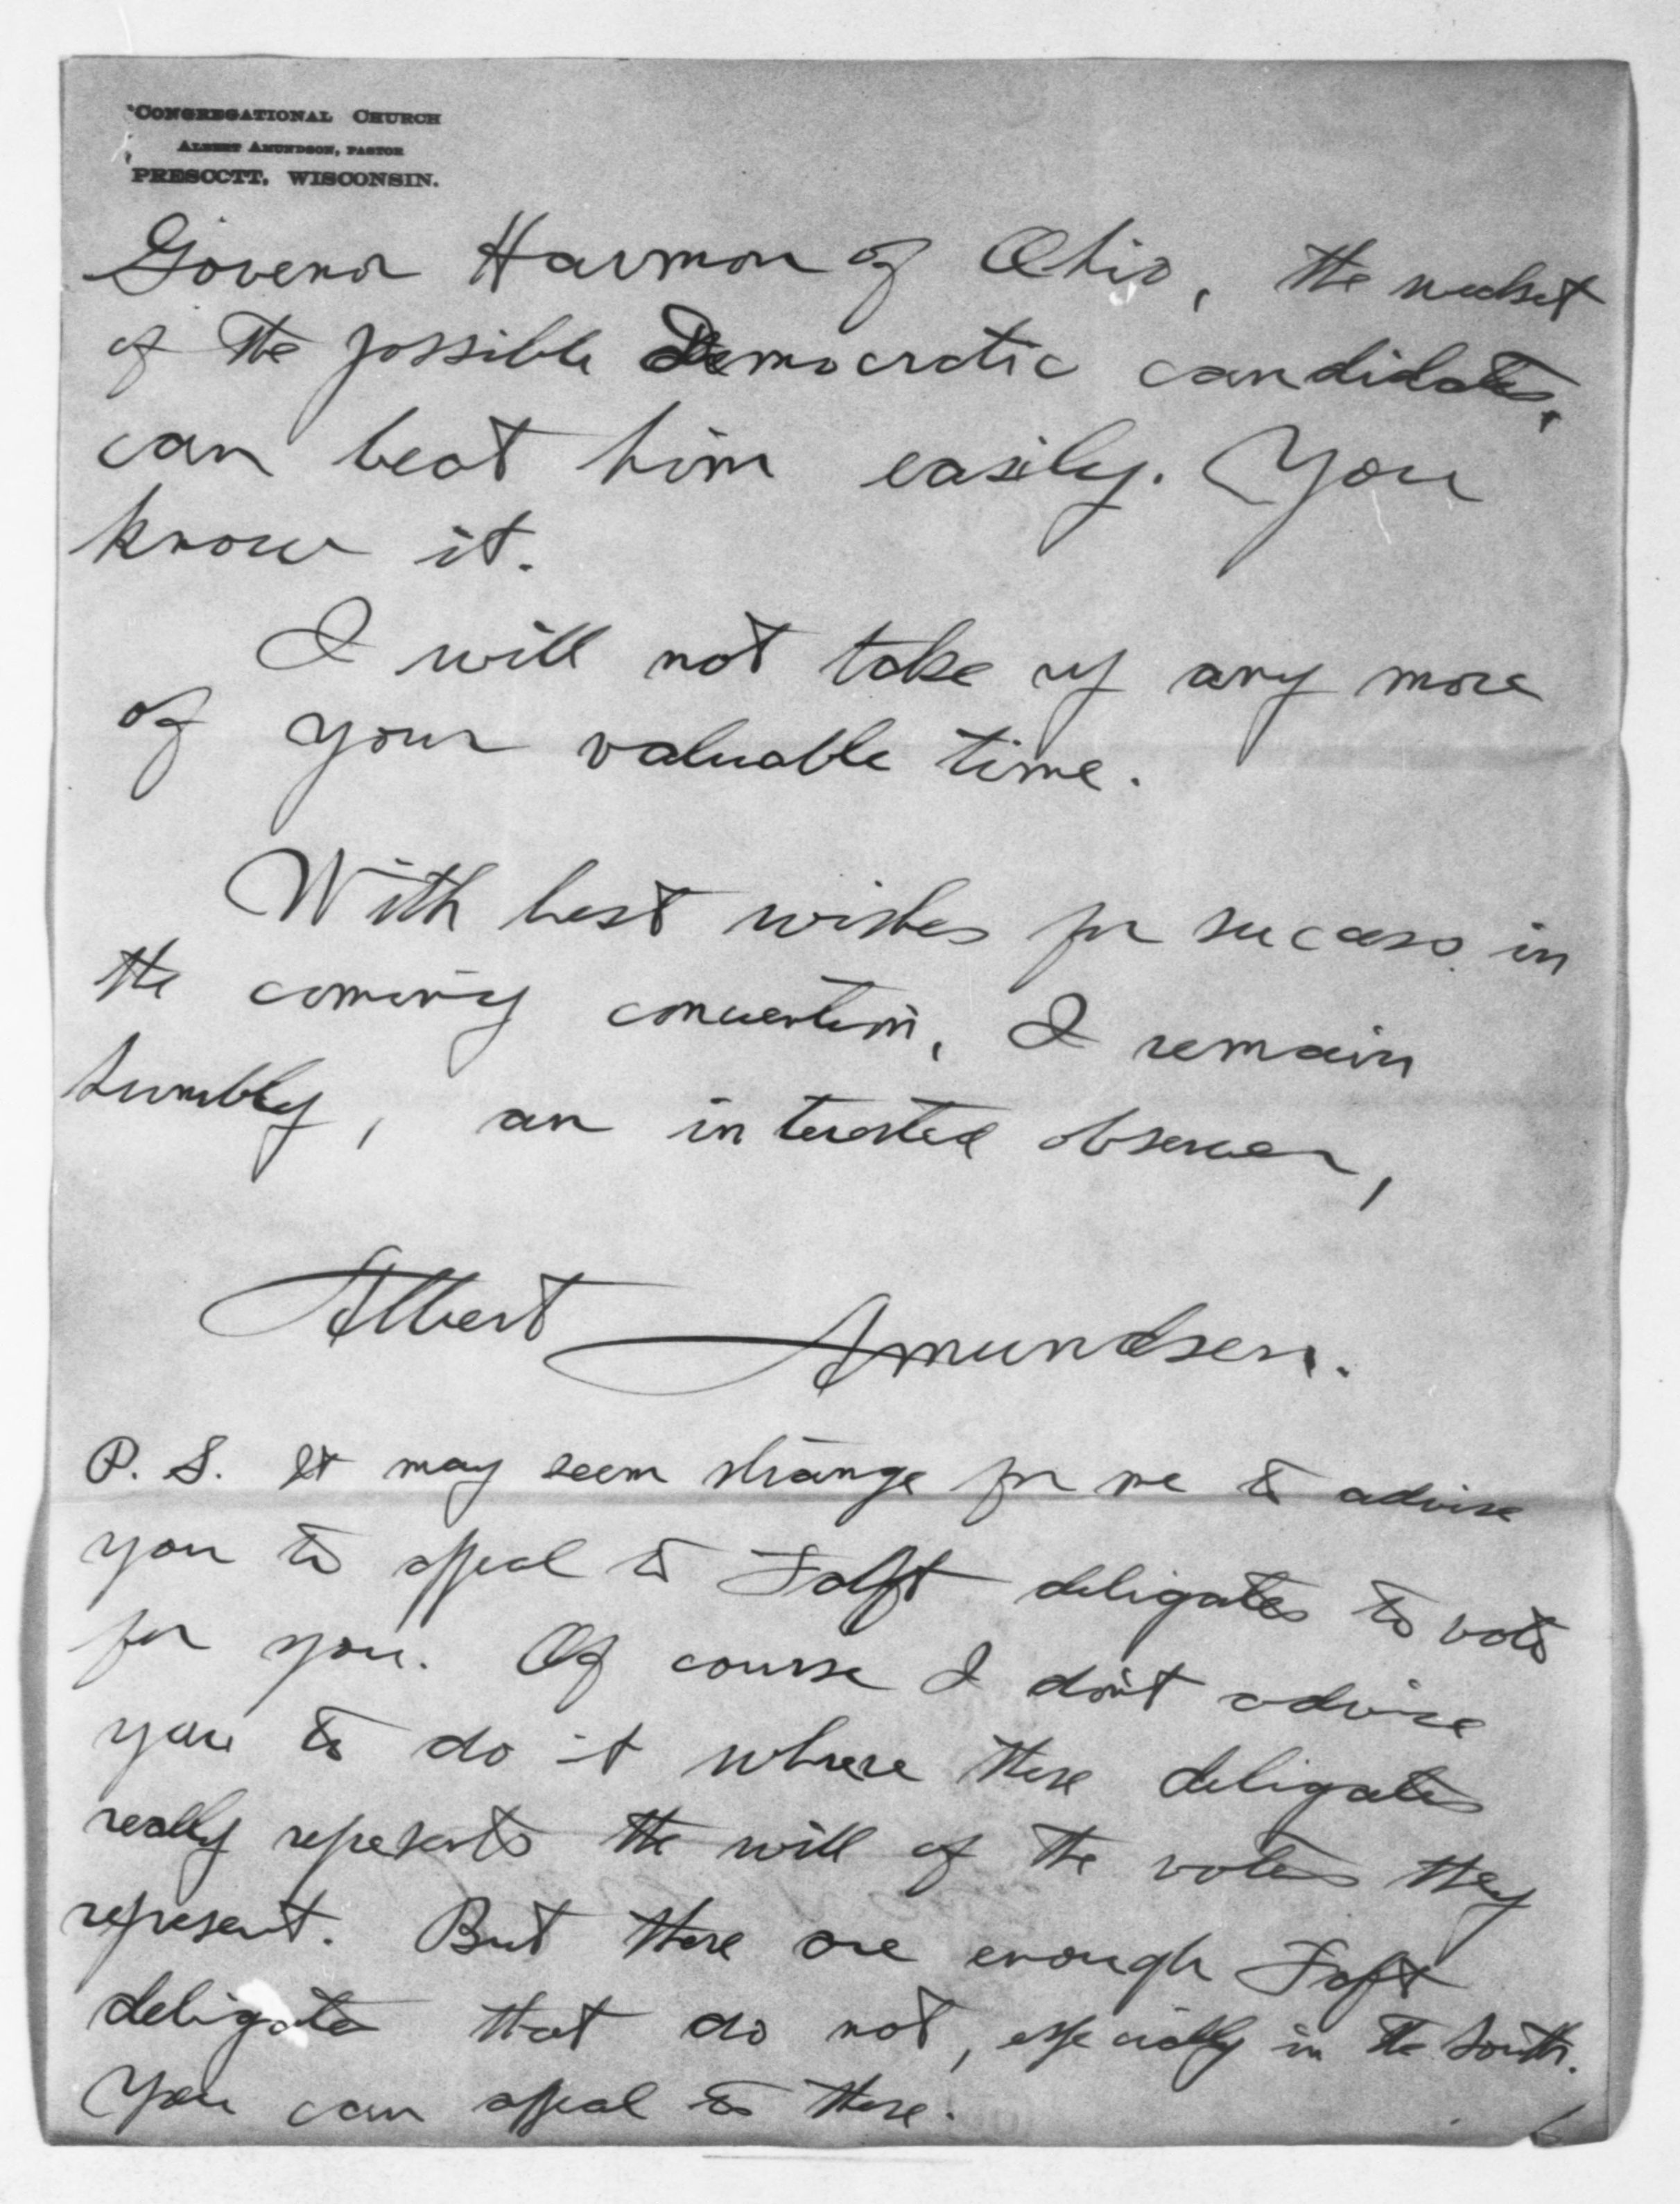 CONGREGATIONAL CHURCH
ALBERT AMUNDSON, PASTOR
PRESCOTT, WISCONSIN.
Govenor Harmon of Ohio, the
of the possible Democratic candidates,
can beat him easily. You
know it.
I will not take up any more
of your valuable time.
With best wishes for success in
the coming convention, I remain
humbly, an interested observer,
Albert Amundsen.
P. S. It may seem strange for me to advise
you to appeal to Taft deligates to vote
for you. Of course I don't advise
you to do it where these deligates
really represents the will of the voters they
represent. But there are enough Taft
deligates that do not, especially in the South.
You can appeal to these.